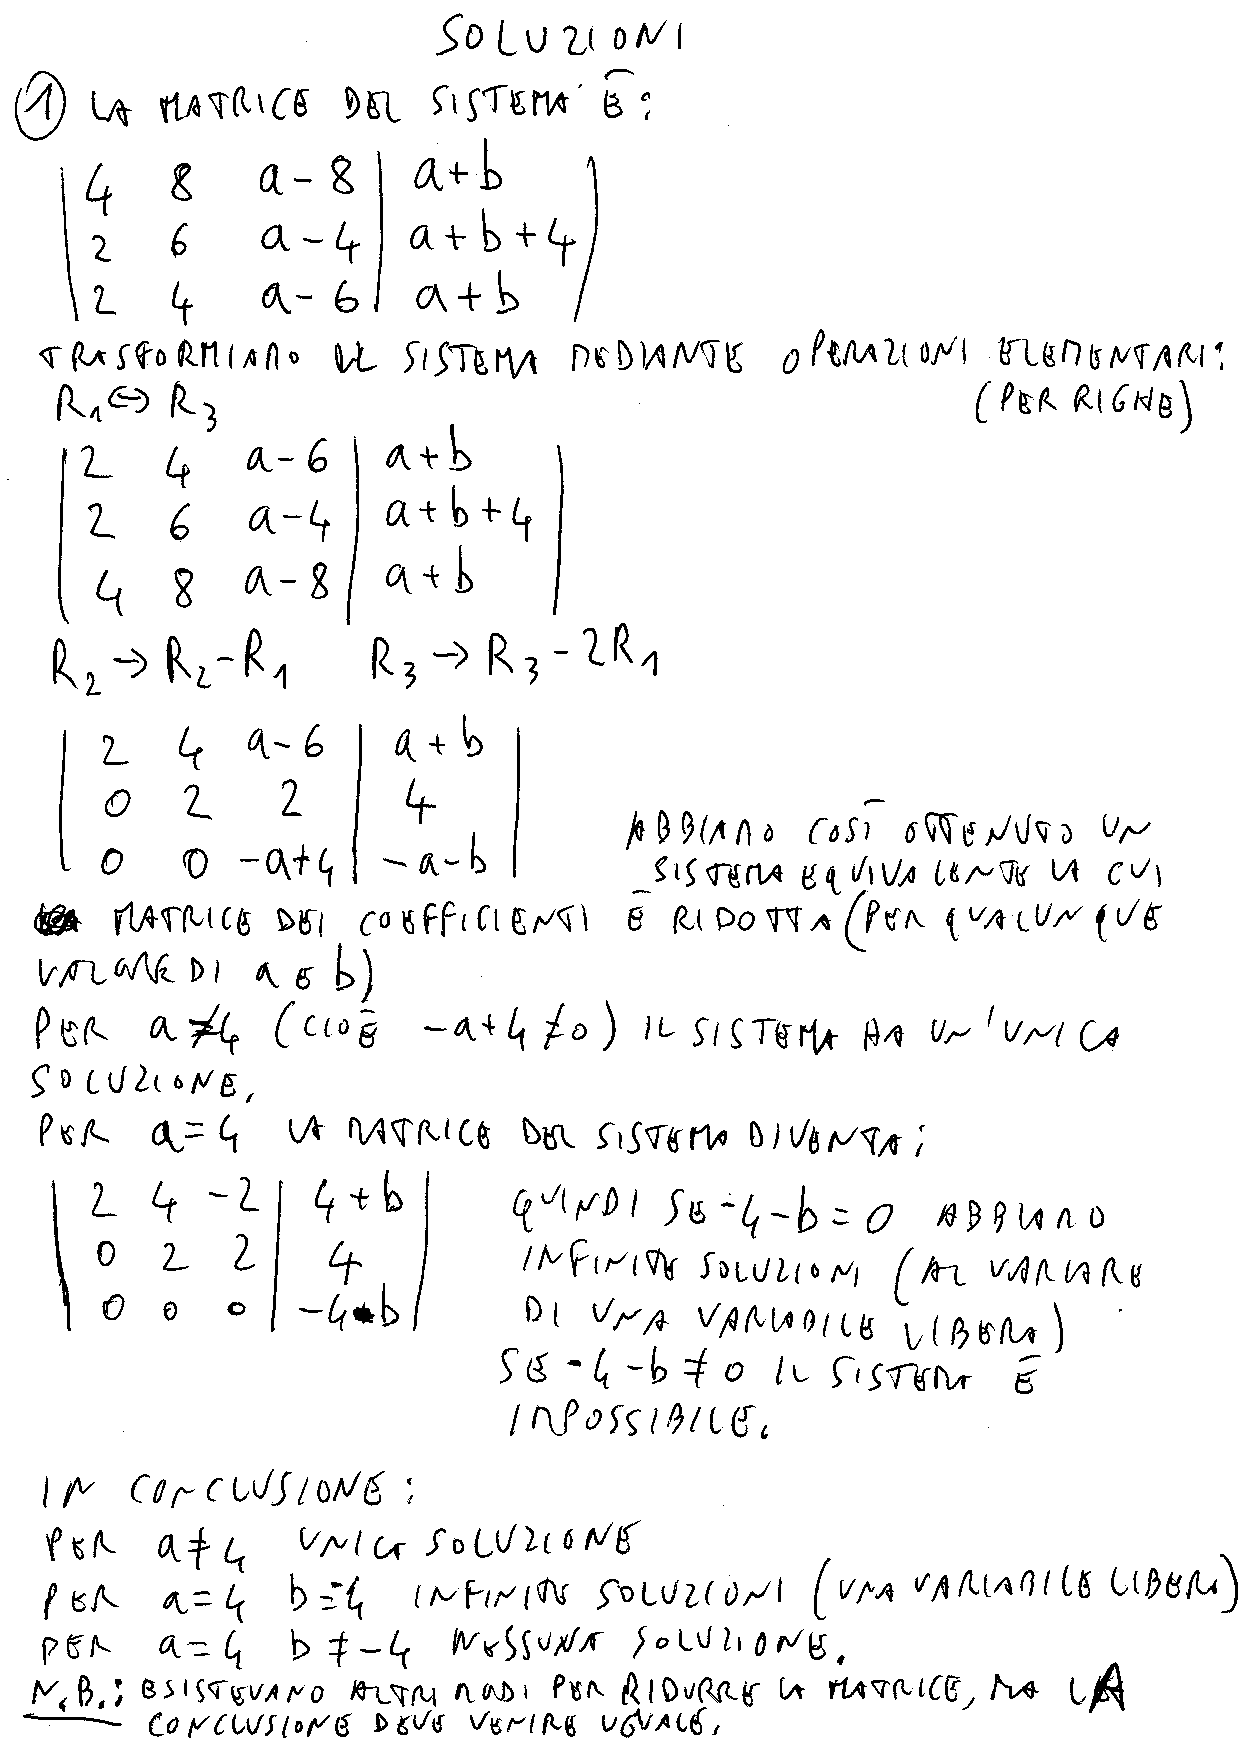 SOLUZIONI
① LA MATRICE DEL SISTEMA È:
| 4 8 a-8 | a+b |
| 2 6 a-4 | a+b+4 |
| 2 4 a-6 | a+b |
TRASFORMIAMO IL SISTEMA MEDIANTE OPERAZIONI ELEMENTARI:
R₁ ↔ R₃ (PER RIGHE)
| 2 4 a-6 | a+b |
| 2 6 a-4 | a+b+4 |
| 4 8 a-8 | a+b |
R₂ → R₂-R₁ R₃ → R₃-2R₁
| 2 4 a-6 | a+b |
| 0 2 2 | 4 |
| 0 0 -a+4 | -a-b |
ABBIAMO COSÌ OTTENUTO UN
SISTEMA EQUIVALENTE LA CUI
MATRICE DEI COEFFICIENTI È RIDOTTA (PER QUALUNQUE
VALORE DI a E b)
PER a≠4 (CIOÈ -a+4≠0) IL SISTEMA HA UN'UNICA
SOLUZIONE.
PER a=4 LA MATRICE DEL SISTEMA DIVENTA:
| 2 4 -2 | 4+b |
| 0 2 2 | 4 |
| 0 0 0 | -4-b |
QUINDI SE -4-b=0 ABBIAMO
INFINITE SOLUZIONI (AL VARIARE
DI UNA VARIABILE LIBERA)
SE -4-b≠0 IL SISTEMA È
IMPOSSIBILE.
IN CONCLUSIONE:
PER a≠4 UNICA SOLUZIONE
PER a=4 b=-4 INFINITE SOLUZIONI (UNA VARIABILE LIBERA)
PER a=4 b≠-4 NESSUNA SOLUZIONE.
N.B.: ESISTEVANO ALTRI MODI PER RIDURRE LA MATRICE, MA LA
CONCLUSIONE DEVE VENIRE UGUALE.